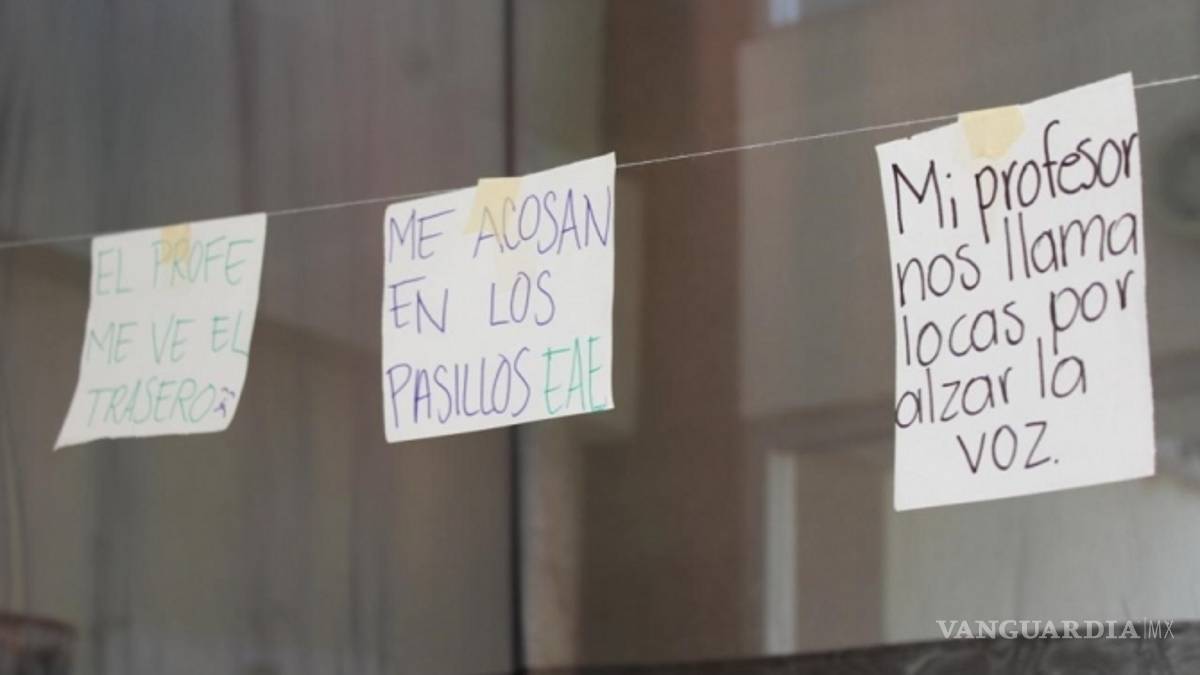 EL PROFE
ME VE EL
TRASERO
ME ACOSAN
EN LOS
PASILLOS EAE
Mi profesor
nos llama
locas por
alzar la
voz.
VANGUARDIA|MX